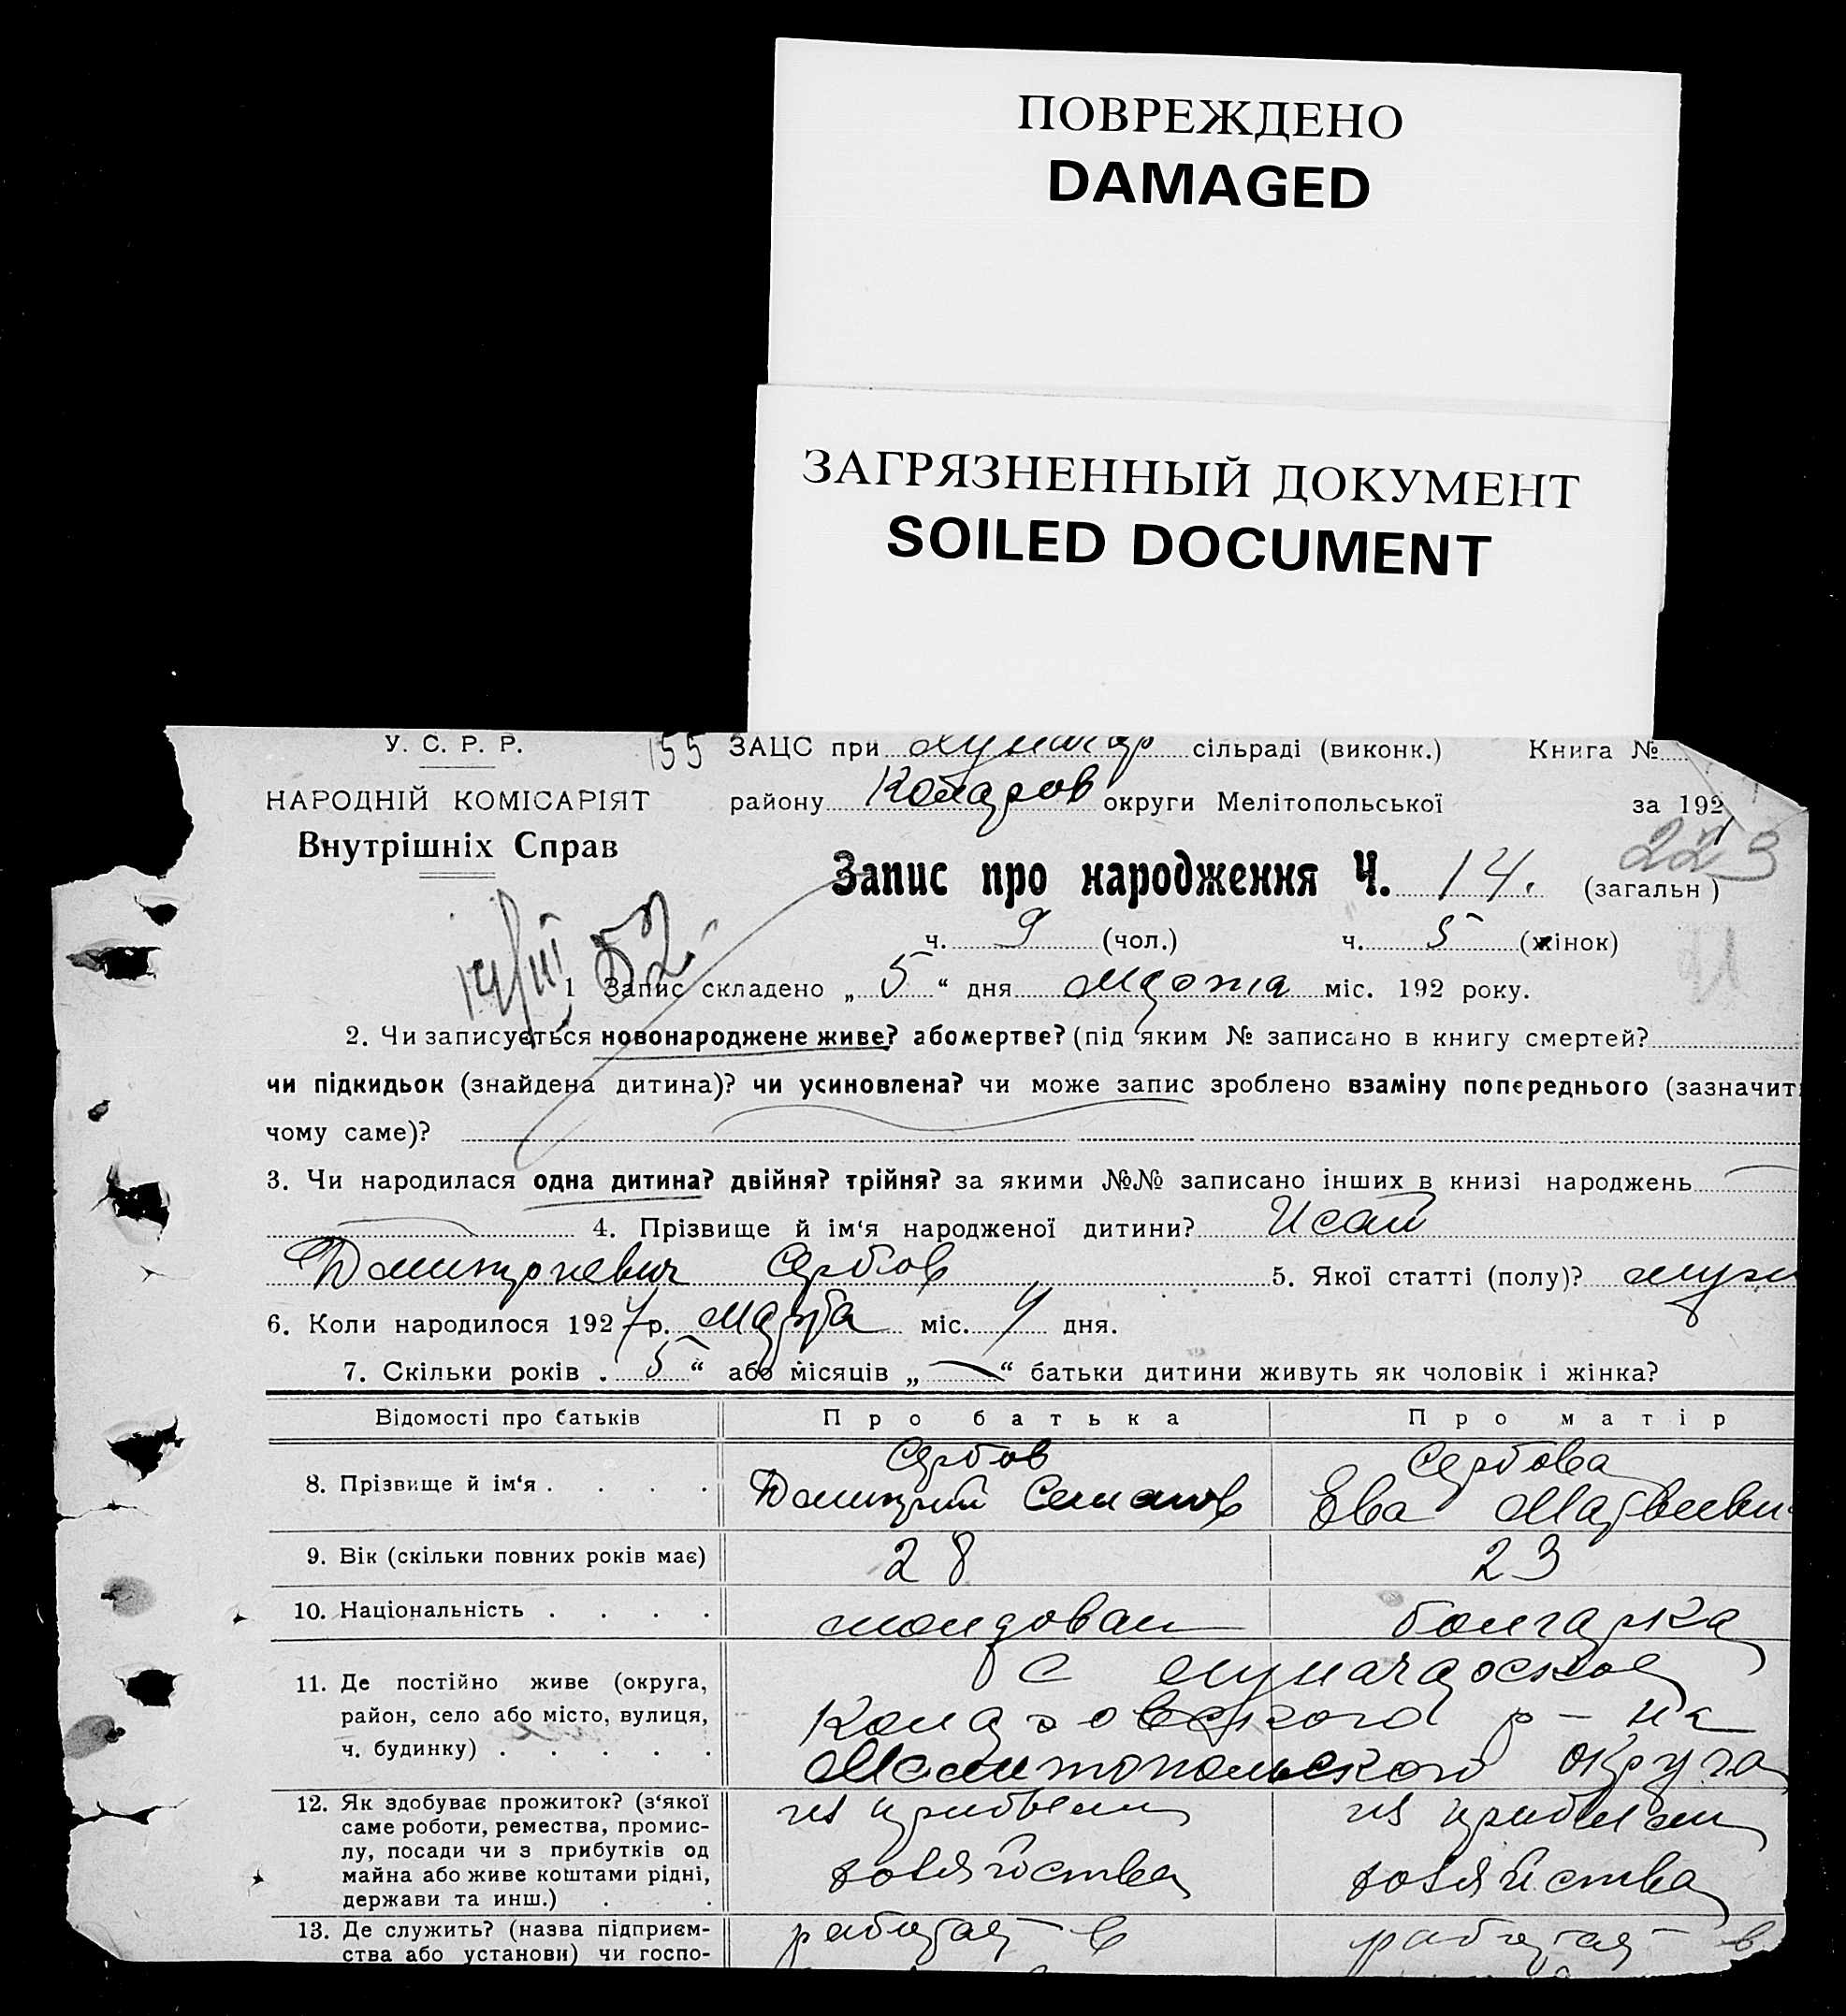 ПОВРЕЖДЕНО
DAMAGED
ЗАГРЯЗНЕННЫЙ ДОКУМЕНТ
SOILED DOCUMENT
У. С. Р. Р. 155 ЗАЦС при сільраді (виконк.) Книга №
НАРОДНІЙ КОМІСАРІЯТ району округи Мелітопольської за 192
Внутрішніх Справ
223
Запис про народження Ч. 14. (загальн)
ч. 9 (чол.) ч. 5 (жінок)
14/III 52
1 Запис складено „ 5 “ дня Марта міс. 192 року.
2. Чи записується новонароджене живе? або мертве? (під яким № записано в книгу смертей?
чи підкидьок (знайдена дитина)? чи усиновлена? чи може запис зроблено взаміну попереднього (зазначити
чому саме)?
3. Чи народилася одна дитина? двійня? трійня? за якими №№ записано інших в книзі народжень
4. Прізвище й ім‘я народженої дитини? Исай
Дмитриевич Сербов 5. Якої статті (полу)? муж
6. Коли народилося 1927 р. Марта міс. 4 дня.
7. Скільки років „ 5 “ або місяців „ — “ батьки дитини живуть як чоловік і жінка?
Відомості про батьків Про батька Про матір
Сербов Сербова
8. Прізвище й ім‘я . . . . Дмитрий Семенов Ева Матвеевн
9. Вік (скільки повних років має) 28 23
10. Національність . . . . молдован болгарка
11. Де постійно живе (округа, с
район, село або місто, вулиця, р-на
ч. будинку) . . . . . Мелитопольского округа
12. Як здобуває прожиток? (з‘якої из прибыли из прибыли
саме роботи, ремества, промис-
лу, посади чи з прибутків од
майна або живе коштами рідні, хозяйства хозяйства
держави та инш.) . .
13. Де служить? (назва підприєм- работает в работает в
ства або установи) чи госпо-